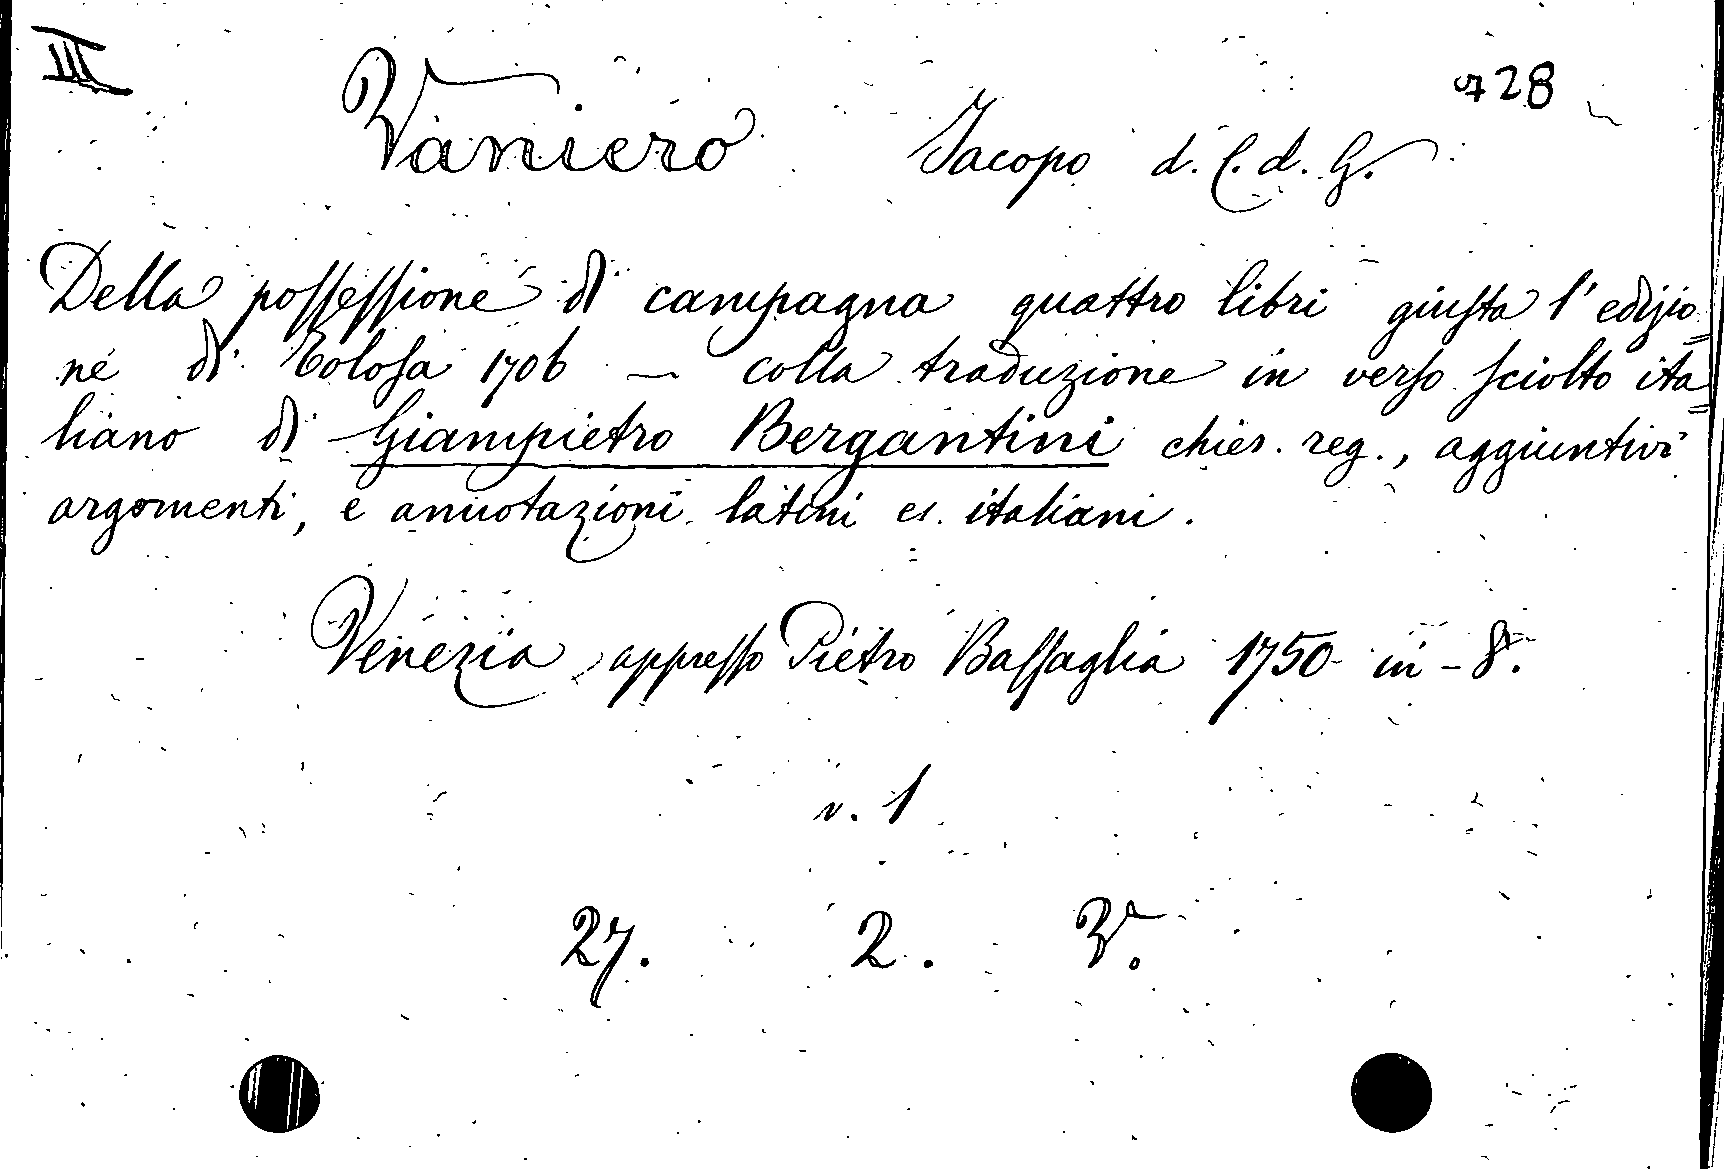 III
728
Vaniero Jacopo d. C. d. G.
Della possessione di campagna quattro libri giusta l'edizio=
ne di Tolosa 1706 — colla traduzione in verso sciolto ita=
liano di Giampietro Bergantini chier. reg., aggiuntivi
argomenti, e annotazioni latini ed italiani.
Venezia, appresso Pietro Bassaglia 1750 in-8.
v. 1
27. 2. V.